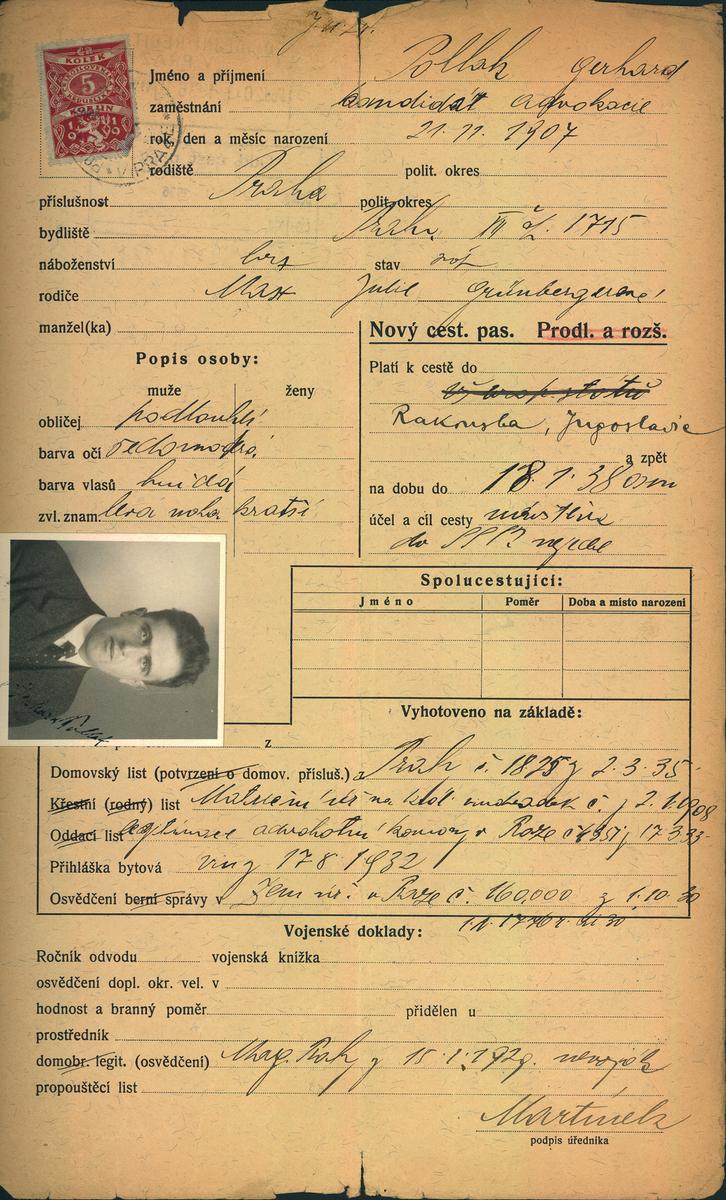 KOLEK
5
KORUN
1919
Jméno a příjmení Pollak Gerhard
zaměstnání kandidát advokacie
rok, den a měsíc narození 21. 11. 1907
rodiště polit. okres
příslušnost Praha polit. okres
bydliště Praha XII čp. 1715
náboženství stav
rodiče Max Julie Grünbergerová
manžel(ka)
Nový cest. pas. Prodl. a rozš.
Popis osoby:
muže ženy
obličej podlouhlý
barva očí
barva vlasů hnědá
zvl. znam. levá noha kratší
Platí k cestě do
Rakouska, Jugoslavie
a zpět
na dobu do 18. 1. 38
účel a cíl cesty
do nejede
Spolucestující:
Jméno Poměr Doba a místo narození
Vyhotoveno na základě:
z
Domovský list (potvrzení o domov. přísluš.) Prah č. 1825 z 2. 3. 35
Křestní (rodný) list č z 2. 1. 1908
Oddací list legitimace advokátní komory v Praze z 17 3 33
Přihláška bytová z 17 8 1932
Osvědčení berní správy v Praze č. 160,000 z 1. 10. 30
Vojenské doklady:
Ročník odvodu vojenská knížka
osvědčení dopl. okr. vel. v
hodnost a branný poměr přidělen u
prostředník
domobr. legit. (osvědčení) Mag. Prah z 15. 1. 1929. nevoják
propouštěcí list
Martínek
podpis úředníka